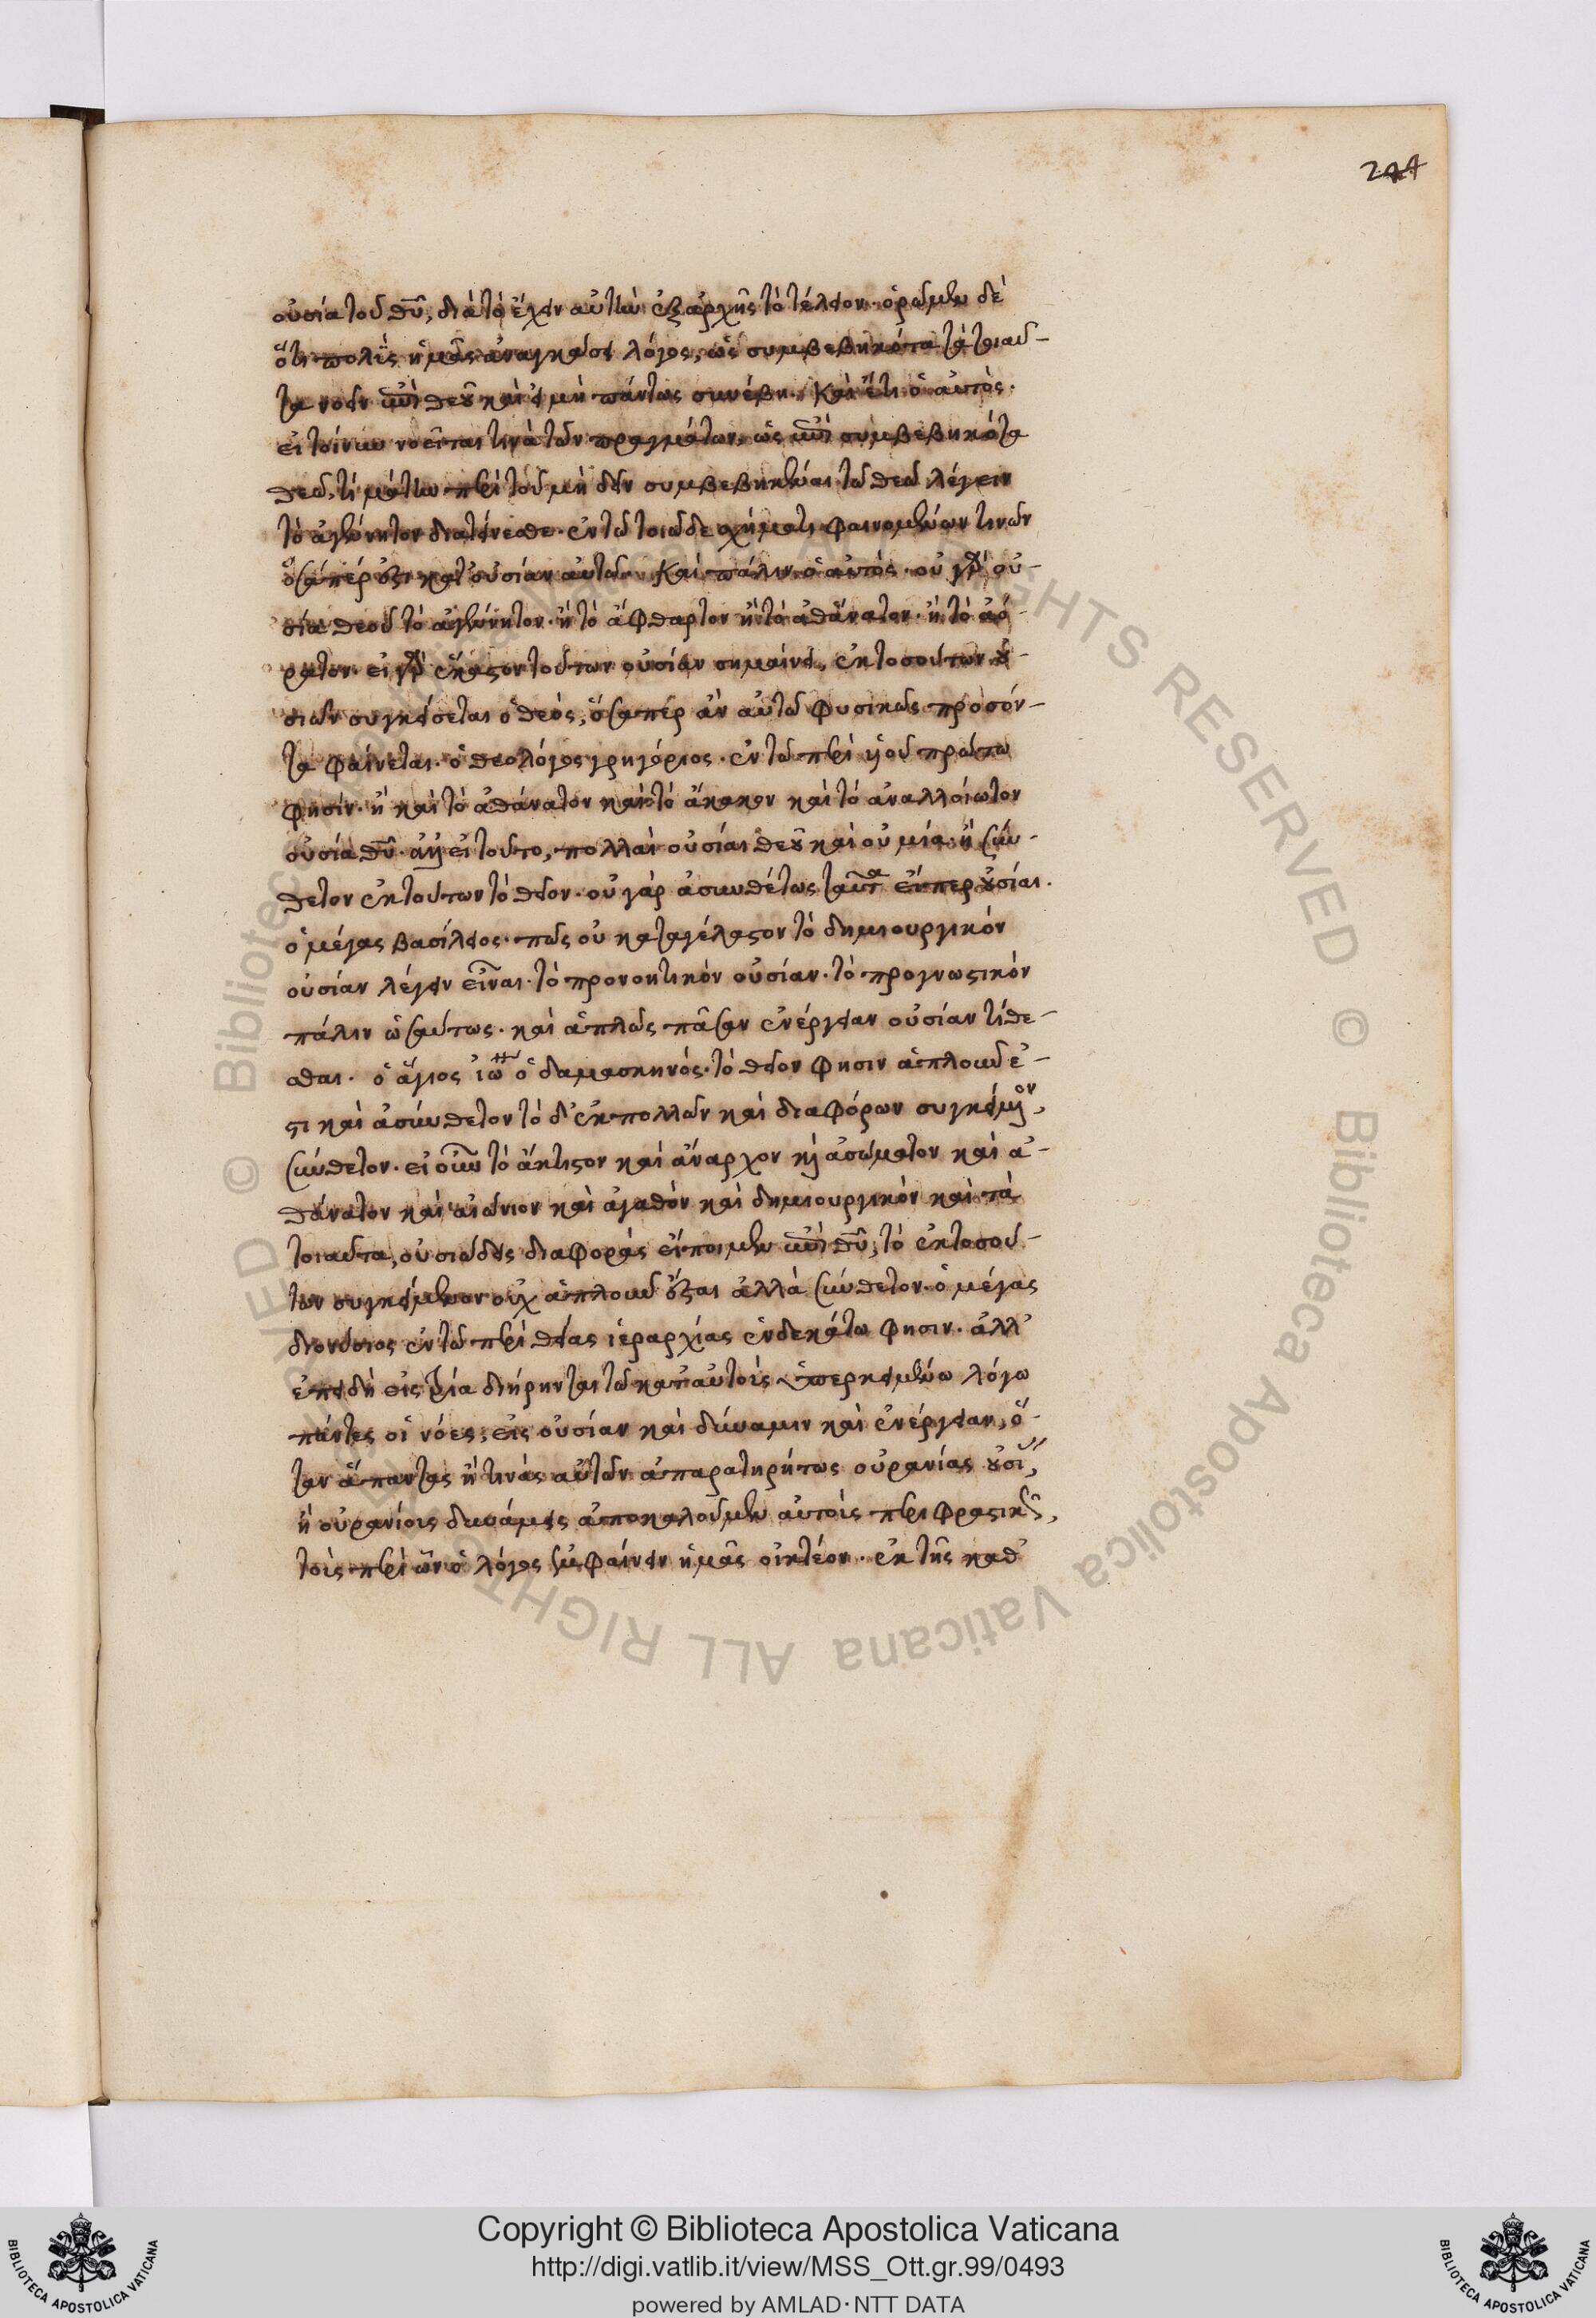 244
οὐσία τοῦ θῡ, διὰ τὸ ἔχειν αὐτὴν ἐξ ἀρχῆς τὸ τέλειον. ὁρῶμεν δὲ
ὅτι πολὺς ἡμᾶς ἀναγκάσει λόγος, ὡς συμβεβηκότα τὰ τοιαῦ-
τα νοεῖν ἐπὶ θεοῦ καὶ εἰ μὴ πάντως συνέβη. Καὶ ἔτι ὁ αὐτός.
εἰ τοίνυν νοεῖται τινὰ τῶν πραγμάτων, ὡς ἐπὶ συμβεβηκότα
θεῶ, τί μάτην περὶ τοῦ μὴ δεῖν συμβεβηκέναι τῶ θεῶ λέγειν
τὸ ἀγέννητον διατείνεσθε. ἐν τῶ τοιῶδε σχήματι φαινομένων τινῶν
ὅσαπέρ ἐστι κατ' οὐσίαν αὐτῶ. Καὶ πάλιν ὁ αὐτός. οὐ γὰρ οὐ-
σία θεοῦ τὸ ἀγέννητον. ἢ τὸ ἄφθαρτον ἢ τὸ ἀθάνατον. ἢ τὸ ἀό-
ρατον. εἰ γὰρ ἕκαστον τούτων οὐσίαν σημαίνει, ἐκ τοσούτων οὐ-
σιῶν συγκείσεται ὁ θεός, ὅσαπέρ ἂν αὐτῶ φυσικῶς προσόν-
τα φαίνεται. ὁ θεολόγος γρηγόριος. ἐν τῶ περὶ υἱοῦ πρώτω
φησίν. ἢ καὶ τὸ ἀθάνατον καὶ τὸ ἄκακον καὶ τὸ ἀναλλοίωτον
οὐσία θῡ. ἀλλ' εἰ τοῦτο, πολλαὶ οὐσίαι θεοῦ καὶ οὐ μία. ἢ σύν-
θετον ἐκ τούτων τὸ θεῖον. οὐ γὰρ ἀσυνθέτως ταῦτα εἴπερ οὐσίαι.
ὁ μέγας βασίλειος. πῶς οὐ καταγέλαστον τὸ δημιουργικόν
οὐσίαν λέγειν εἶναι. τὸ προνοητικόν οὐσίαν. τὸ προγνωστικόν
πάλιν ὡσαύτως. καὶ ἁπλῶς πᾶσαν ἐνέργειαν οὐσίαν τίθε-
σθαι. ὁ ἅγιος ἰω ὁ δαμασκηνός. τὸ θεῖον φησιν ἁπλοῦν ἐ-
στι καὶ ἀσύνθετον τὸ δ' ἐκ πολλῶν καὶ διαφόρων συγκείμενον,
σύνθετον. εἰ οὖν τὸ ἄκτιστον καὶ ἄναρχον καὶ ἀσώματον καὶ ἀ-
θάνατον καὶ αἰώνιον καὶ ἀγαθόν καὶ δημιουργικόν καὶ τὰ
τοιαῦτα, οὐσιώδεις διαφοράς εἴποιμεν ἐπὶ θῡ, τὸ ἐκ τοσού-
των συγκείμενον οὐχ ἁπλοῦν ἔσται ἀλλὰ σύνθετον. ὁ μέγας
διονύσιος ἐν τῶ περὶ θείας ἱεραρχίας ἑνδεκάτω φησιν. ἀλλ'
ἐπειδὴ εἰς τρία διήρηνται τῶ κατ' αὐτοὺς ὑπερκειμένω λόγω
πάντες οἱ νόες, εἰς οὐσίαν καὶ δύναμιν καὶ ἐνέργειαν, ὅ-
ταν ἅπαντας ἢ τινὰς αὐτῶν ἀπαρατηρήτως οὐρανίας οὐσί,
ἢ οὐρανίους δυνάμεις ἀποκαλοῦμεν αὐτοὺς περιφραστικῶς,
τοὺς περὶ ὧν ὁ λόγος ἐμφαίνειν ἡμᾶς οἰητέον. ἐκ τῆς καθ'
© Biblioteca Apostolica Vaticana ALL RIGHTS RESERVED
Copyright © Biblioteca Apostolica Vaticana
http://digi.vatlib.it/view/MSS_Ott.gr.99/0493
powered by AMLAD·NTT DATA
BIBLIOTECA APOSTOLICA VATICANA
BIBLIOTECA APOSTOLICA VATICANA